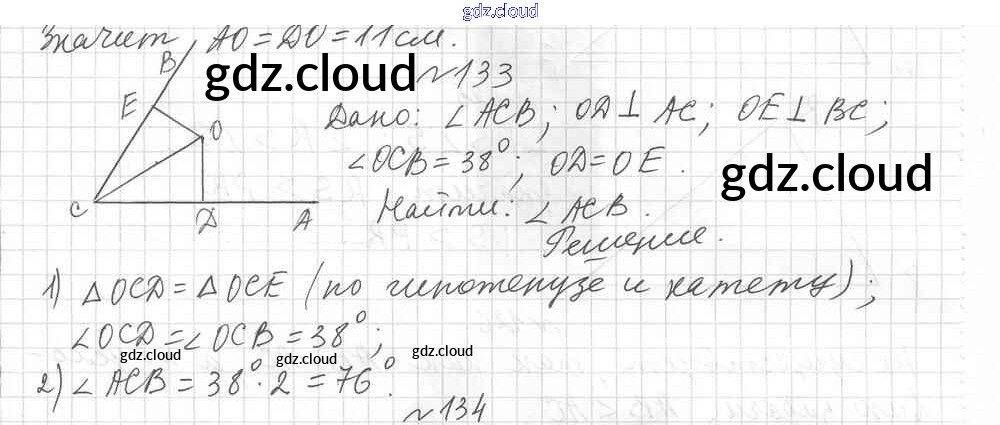 gdz.cloud
Значит, AO = DO = 11 см.
gdz.cloud
№133
B
E
O
C
D
A
Дано: ∠ACB; OD ⊥ AC; OE ⊥ BC;
∠OCB = 38°; OD = OE.
gdz.cloud
Найти: ∠ACB.
Решение.
1) △OCD = △OCE (по гипотенузе и катету);
∠OCD = ∠OCB = 38°;
gdz.cloud
gdz.cloud
gdz.cloud
2) ∠ACB = 38°·2 = 76°.
№134